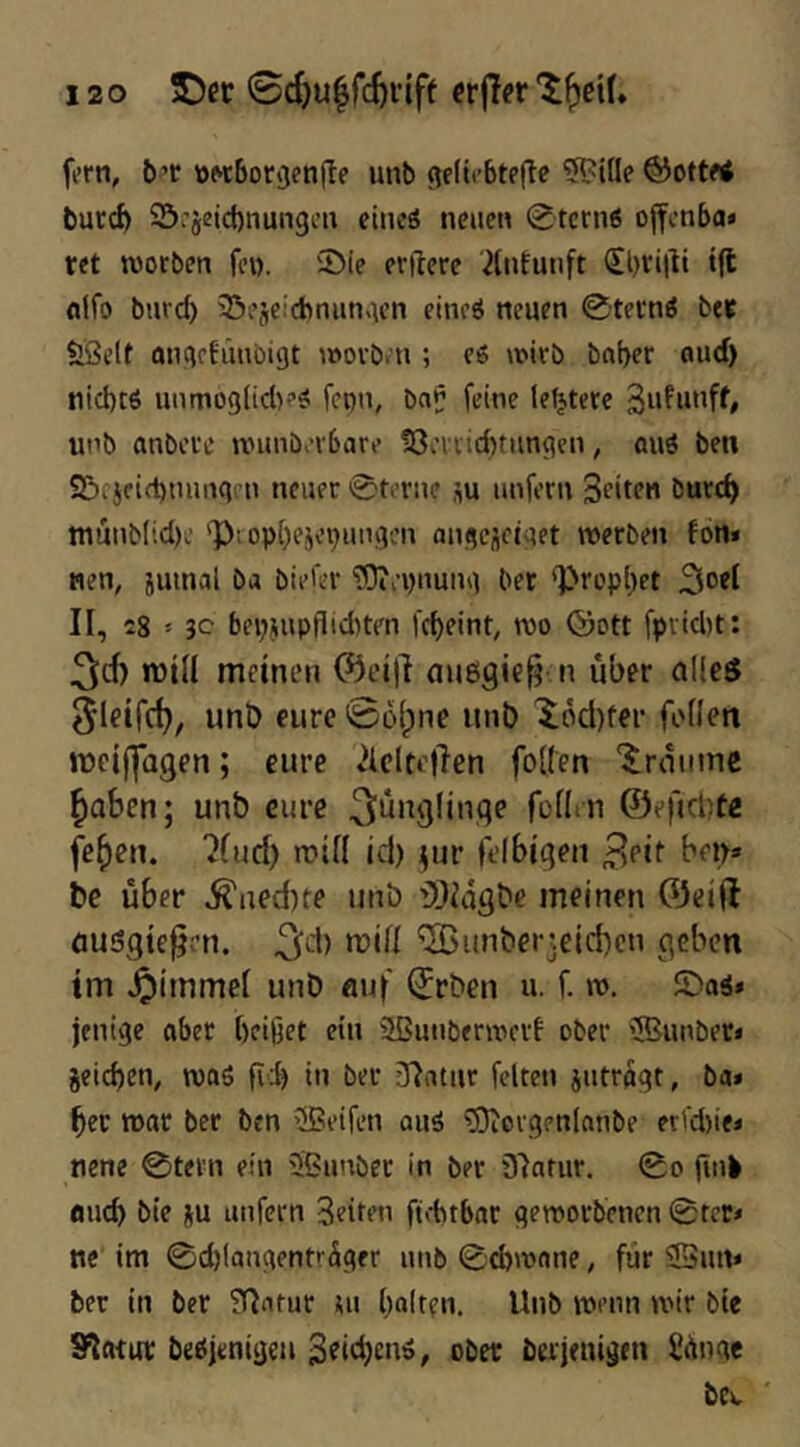 120 Der Schutzschrift erster Theil.
sern, der verborgenste und geliebteste Wille Gottes
durch Bezeichnungen eines neuen Sterns offenba-
ret worden sey. Die erstere Ankunft Christi ist
also durch Bezeichnungen eines neuen Sterns der
Welt angekündigt worden; es wird daher auch
nichts unmögliches seyn, daß seine letztere Zukunft,
und andere wunderbare Verrichtungen, aus den
Bezeichnungen neuer Sterne zu unsern Zeiten durch
mündliche Prophezeyungen angezeiget werden kön-
nen, zumal da dieser Meynung der Prophet Joel
II, 28 = 30 beyzupflichten scheint, wo Gott spricht:
Ich will meinen Geist ausgießen über alles
Fleisch, und eure Söhne und Töchter sollen
weissagen; eure Aeltesten sollen Träume
haben; und eure Jünglinge sollen Gesichte
sehen. Auch will ich zur selbigen Zeit bey-
de über Knechte und Mägde meinen Geist
ausgießen. Ich will Wunderzeichen geben
im Himmel und auf Erden u. s. w. Das-
jenige aber heißet ein Wunderwerk oder Wunder-
zeichen, was sich in der Natur selten zuträgt, da-
her war der den Weisen aus Morgenlande erschie-
nene Stern ein Wunder in der Natur. So sind
auch die zu unsern Zeiten sichtbar gewordenen Ster-
ne im Schlangenträger und Schwane, für Wun-
der in der Natur zu halten. Und wenn wir die
Natur desjenigen Zeichens, oder derjenigen Länge
der